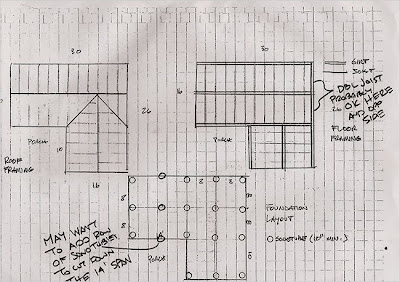 30
30
GIRT
JOIST
DBL JOIST
PROBABLY
OK HERE
AND OPP
SIDE
16
26
PORCH
PORCH
10
ROOF
FRAMING
FLOOR
FRAMING
16
8
8
8
8
FOUNDATION
LAYOUT
SONOTUBE (10" MIN.)
MAY WANT
TO ADD ROW
OF SONOTUBES
TO CUT DOWN
THE 14' SPAN
PORCH